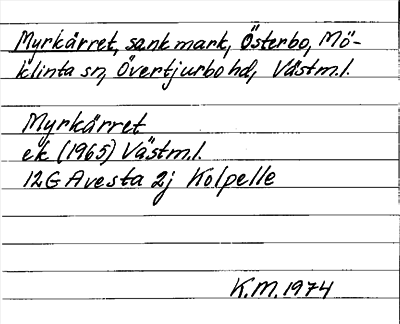 Myrkärret, sank mark, Österbo, Mö-
klinta sn, Övertjurbo hd, Västm.l.
Myrkärret
ek (1965) Västm.l.
12G Avesta 2j Kolpelle
K.M. 1974